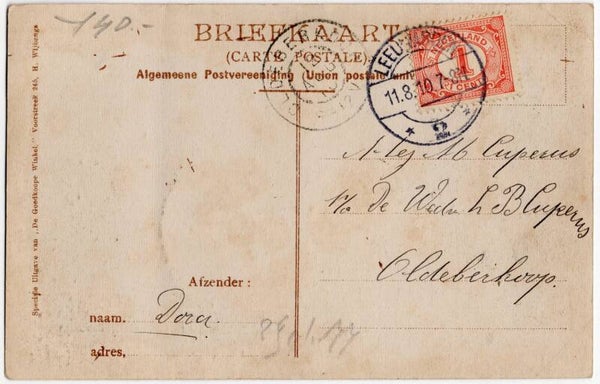 140.-
BRIEFKAART
(CARTE POSTALE)
Algemeene Postvereeniging (Union postale univ
NEDERLAND
1
CENT
LEEUWARDEN
11.8.10 7-8
2
OLDEBERKOOP
Speciale Uitgave van „De Goedkoope Winkel." Voorstreek 245, H. Wijbenga
M Cuperus
De Wed. B Cuperus
Oldeberkoop.
Afzender:
naam. Dora.
adres,